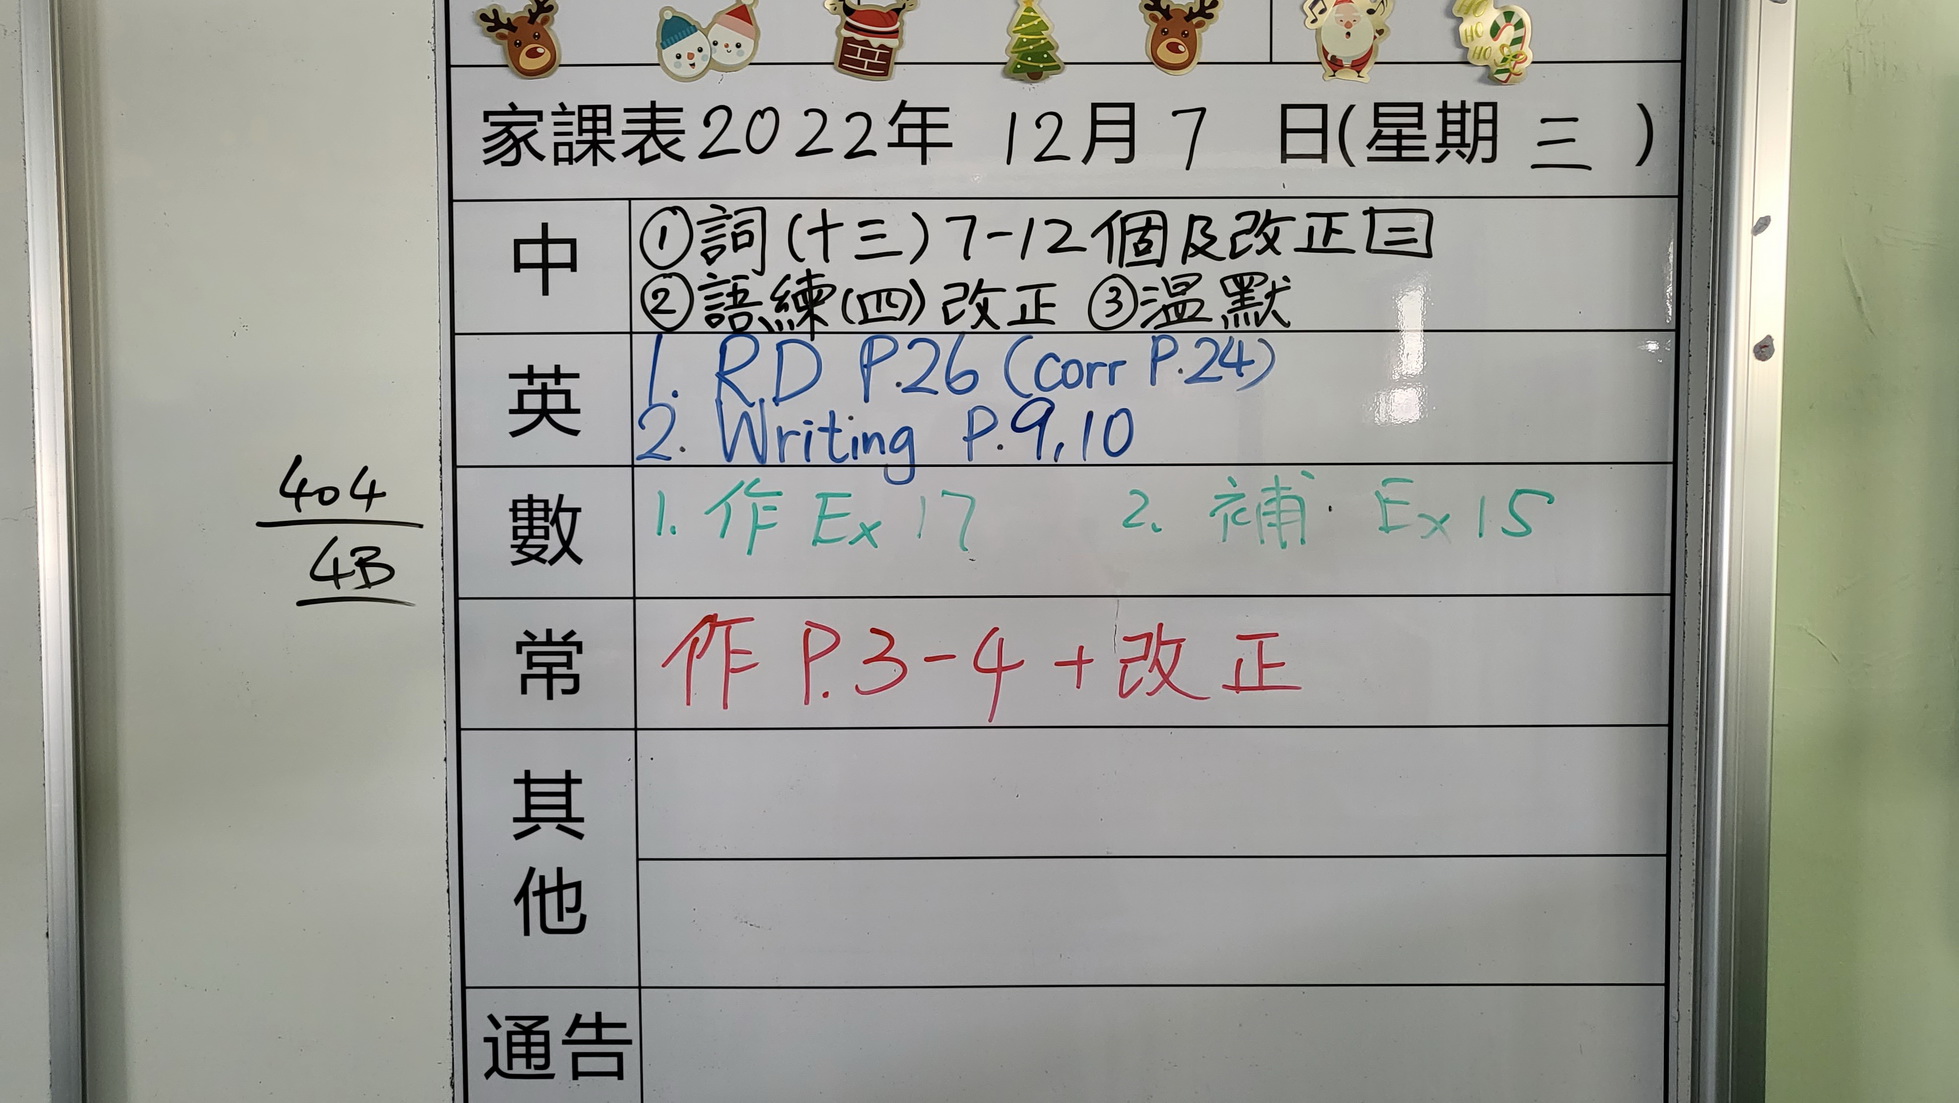 HO
HO
家課表2022年 12月7 日(星期 三 )
中
①詞(十三)7-12個及改正三
②語練(四)改正 ③溫默
英
1. RD P.26 (corr P.24)
2. Writing P.9,10
數
1. 作 Ex 17 2. 補. Ex 15
404
4B
常
作 P.3-4 + 改正
其他
通告